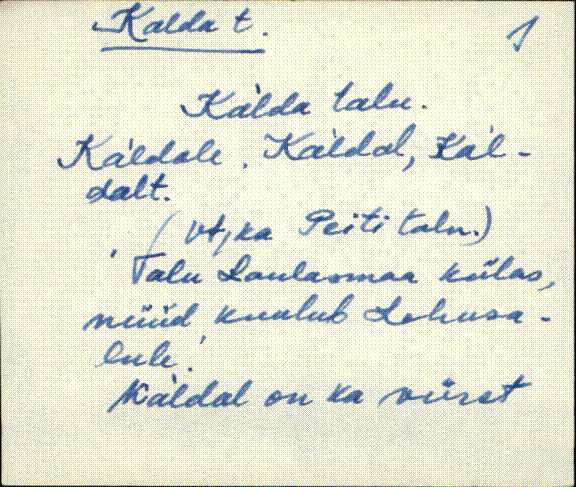 Kalda t.
1
Kàlda talu.
Kàldale, Kàldal, Kàl-
dalt.
(Vt, ka Peiti talu.)
Talu Laulasmaa külas,
nüüd kuulub Lohusa-
lule.
Kàldal on ka viirst